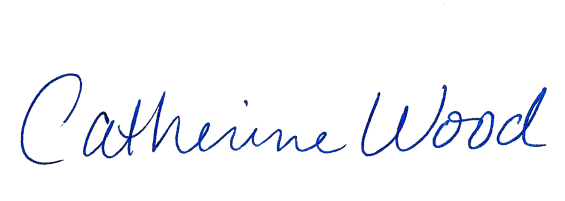 Catherine Wood